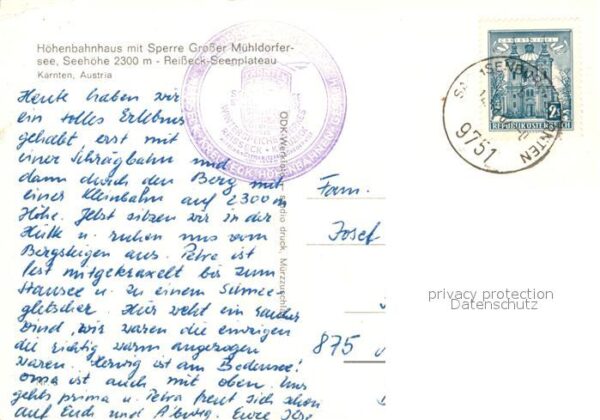 Höhenbahnhaus mit Sperre Großer Mühldorfer-
see, Seehöhe 2300 m - Reißeck-Seenplateau
Kärnten, Austria
Heute haben wir
ein tolles Erlebnis
gehabt, erst mit
einer Schrägbahn und
dann durch den Berg mit
einer Kleinbahn auf 2300 m
Höhe. Jetzt sitzen wir in der
Hütte u. ruhen uns vom
Bergsteigen aus. Petra ist
fest mitgekraxelt bis zum
Stausee u. zu einem Schnee-
gletscher. Hier weht ein rauher
Wind, wir waren die einzigen
die richtig warm angezogen
waren. Herwig ist am Bodensee!
Oma ist auch mit oben. Uns
gehts prima u. Petra freut sich schon
auf Euch und Eure
Fam.
Josef
875
REPUBLIK ÖSTERREICH
9751
privacy protection
Datenschutz